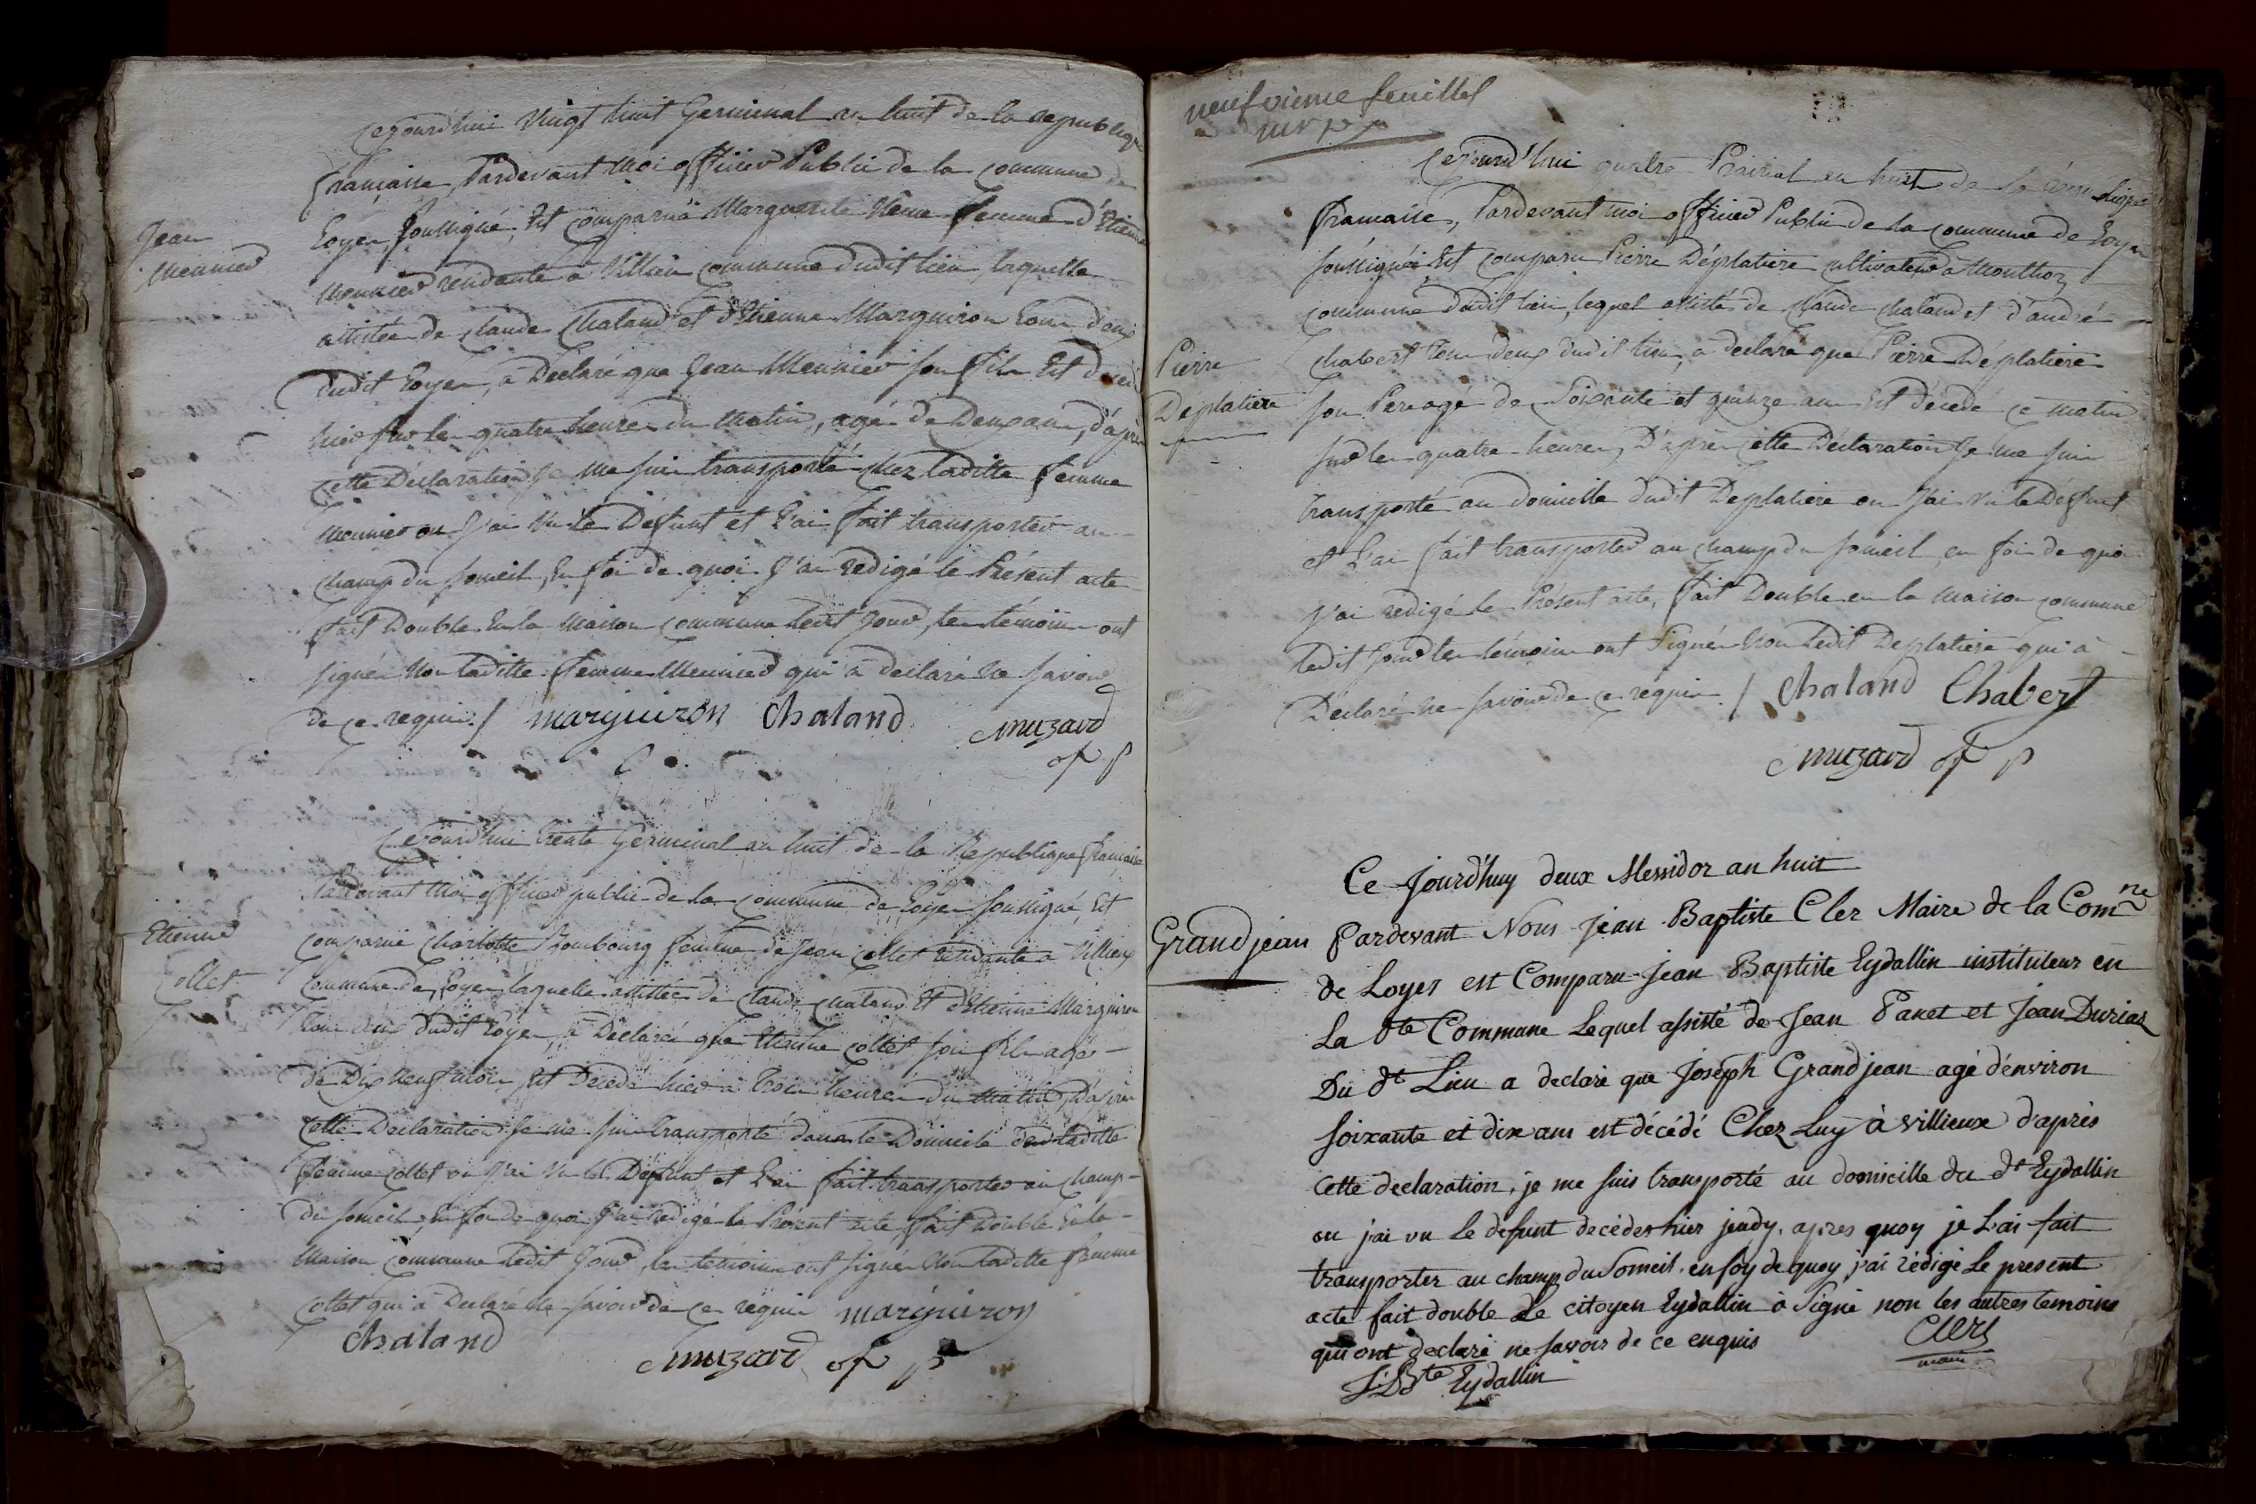 Cejourd'hui Vingt huit Germinal an huit de la republique
française, Pardevant moi officier Public de la commune de
Loyes soussigné, Est comparuë Marguerite femme d'Etienne
Jean
Meunier
Meunier residante à Villieu commune dudit lieu, laquelle
assistée de claude Chaland et d'Etienne Marguiron tous deux
dudit Loyes, à Déclaré que Jean Meunier son fils Est décédé
hier sur les quatre heures du matin, agé de Deux ans, d'après
cette Déclaration Je me suis transporté chez laditte femme
Meunier ou J'ai Vu le Défunt et L'ai fait transporter au
champ du someil, En foi de quoi J'ai redigé le Présent acte
fait Double En la Maison commune ledit Jour, les témoins ont
signés Non laditte femme Meunier qui à declaré ne savoir
de ce requis / marguiron Chaland muzard
of p
Cejourd'hui trente Germinal an huit de la Republique française
Pardevant Moi officier public de la commune de Loyes soussigné, Est
Etienne
Collet
comparuë Charlotte femme de Jean Collet residante à Villieux
Commune de Loyes, laquelle assistée de Claude Chaland Et d'Etienne Marguiron
tous deux dudit Loyes, à Déclaré que Etienne Collet son fils agé
de Dix neuf mois, Est Décédé hier à trois heures du matin, D'après
Cette Declaration Je me suis transporté dans le Domicile de laditte
femme Collet ou J'ai Vu le Défunt et L'ai fait transporter au champ
du someil, En foi de quoi J'ai redigé le Présent acte, fait Double En la
Maison commune ledit Jour, les témoins ont signés Non laditte femme
Collet qui à Declaré ne savoir de ce requis marguiron
Chaland muzard of p
neufvieme feuillet
Cejourd'hui quatre Prairial an huit de la république
francaise, Pardevant moi officier Public de la commune de Loyes
soussigné Est comparu Pierre Déplatiere cultivateur à Monthoz
commune dudit lieu, lequel assisté de Claude chaland et d'andré
Pierre
Déplatiere
Chabert tous deux dudit lieu, à declaré que Pierre Déplatiere
son Pere agé de Soixante et quinze ans Est décédé ce matin
sur les quatre heures, D'après cette Déclaration Je me suis
transporté au domicille dudit Deplatiere ou J'ai Vu le Défunt
et L'ai fait transporter au champ du someil, en foi de quoi
J'ai redigé le Présent acte, fait Double en la maison commune
ledit Jour les témoins ont Signés Non ledit Deplatiere qui à
Déclaré ne savoir de ce requis / Chaland Chabert
muzard of p
Ce Jourd'huy deux Messidor an huit
Grandjean
Pardevant Nous Jean Baptiste Clez Maire de la Comne
de Loyes est Comparu Jean Baptiste Eydallin instituteur en
La dte Commune Lequel assisté de Jean Panet et Jean Duriaz
Du dt Lieu a declaré que Joseph Grandjean agé d'environ
soixante et dix ans est décédé Chez Luy à villieux d'après
cette declaration, je me suis transporté au domicille du dt Eydallin
ou j'ai vu le defunt decedes hier jeudy, apres quoy je L'ai fait
transporter au champ du Someil, en foy de quoy j'ai rédigé Le present
acte fait double Le citoyen Eydallin à Signé non les autres temoins
qui ont declaré ne savoir de ce enquis
J. Bte Eydallin